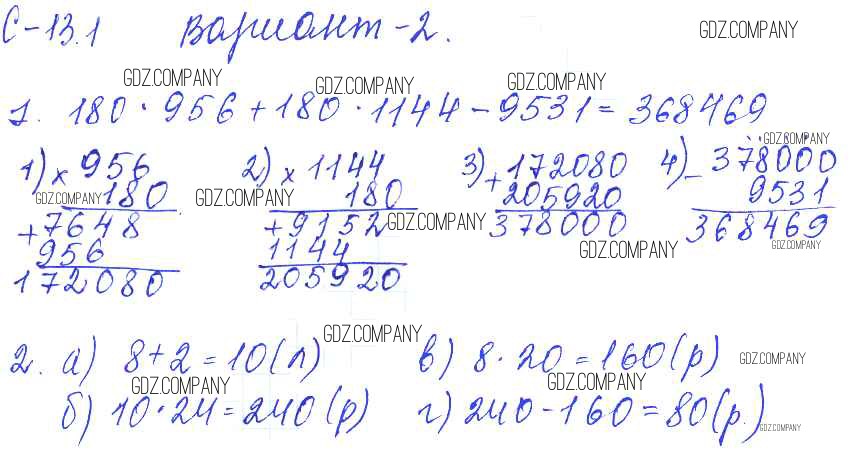 С-13.1 Вариант-2. GDZ.COMPANY
GDZ.COMPANY GDZ.COMPANY GDZ.COMPANY
1. 180 · 956 + 180 · 1144 - 9531 = 368469
GDZ.COMPANY
1) × 956 2) × 1144 3) + 172080 4) - 378000
GDZ.COMPANY 180 GDZ.COMPANY 180 205920 9531
+ 7648 + 9152 GDZ.COMPANY 378000 368469
956 1144 GDZ.COMPANY GDZ.COMPANY
172080 205920
GDZ.COMPANY
2. а) 8 + 2 = 10 (л) в) 8 · 20 = 160 (р) GDZ.COMPANY
GDZ.COMPANY GDZ.COMPANY
б) 10 · 24 = 240 (р) г) 240 - 160 = 80 (р.) GDZ.COMPANY